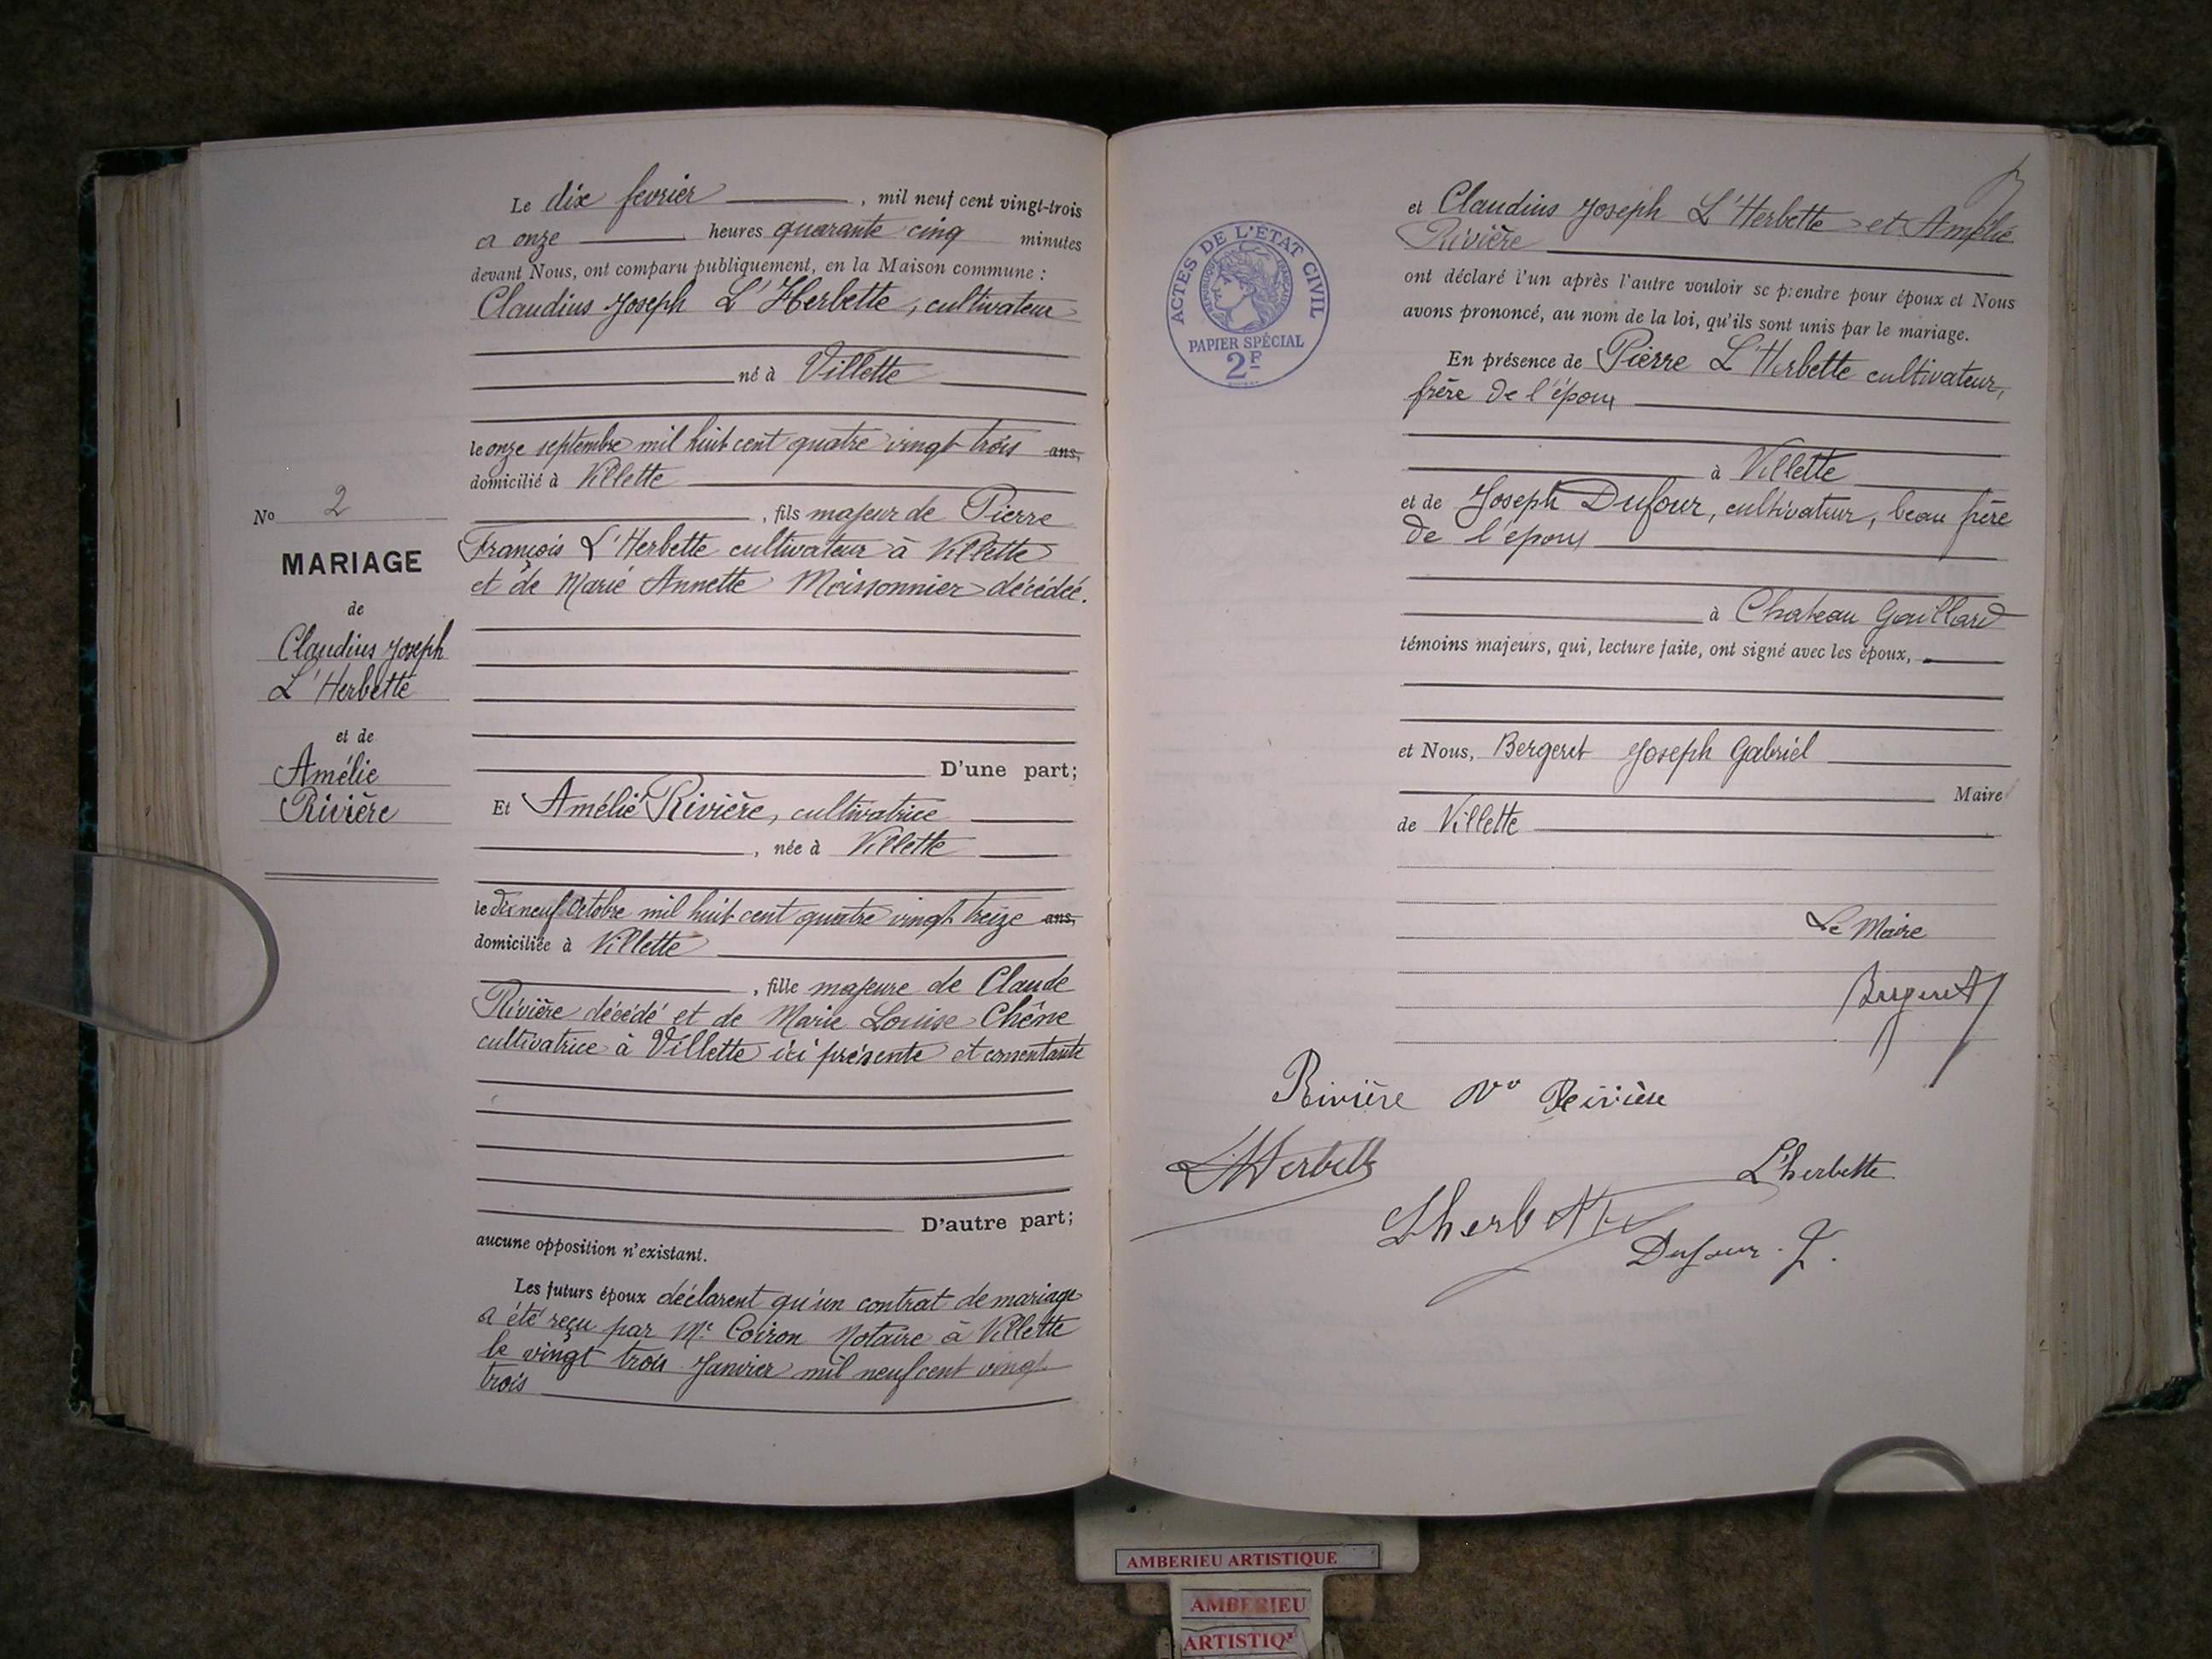 No 2
MARIAGE
de
Claudius Joseph
L'Herbette
et de
Amélie
Rivière
Le dix fevrier , mil neuf cent vingt-trois
a onze heures quarante cinq minutes
devant Nous, ont comparu publiquement, en la Maison commune :
Claudius Joseph L'Herbette, cultivateur
né à Villette
le onze septembre mil huit cent quatre vingt trois ans,
domicilié à Villette
, fils majeur de Pierre
François L'Herbette cultivateur à Villette
et de Marie Annette Moissonnier décédée.
D'une part;
Et Amélie Rivière, cultivatrice
, née à Villette
le dix neuf Octobre mil huit cent quatre vingt treize ans,
domiciliée à Villette
, fille majeure de Claude
Rivière décédé et de Marie Louise Chêne
cultivatrice à Villette ici présente et consentante
D'autre part;
aucune opposition n'existant.
Les futurs époux déclarent qu'un contrat de mariage
a été reçu par Me Coiron Notaire à Villette
le vingt trois Janvier mil neuf cent vingt
trois
ACTES DE L'ETAT CIVIL
REPUBLIQUE FRANÇAISE
PAPIER SPÉCIAL
2F
et Claudius Joseph L'Herbette et Amélie
Rivière
ont déclaré l'un après l'autre vouloir se prendre pour époux et Nous
avons prononcé, au nom de la loi, qu'ils sont unis par le mariage.
En présence de Pierre L'Herbette cultivateur,
frère de l'époux
à Villette
et de Joseph Dufour, cultivateur, beau frère
de l'époux
à Chateau Gaillard
témoins majeurs, qui, lecture faite, ont signé avec les époux,
et Nous, Bergeret Joseph Gabriel
Maire
de Villette
Le Maire
Bergeret
Rivière Vve Rivière
L'Herbette
L'herbette
Lherbette
Dufour. J.
AMBERIEU ARTISTIQUE
AMBERIEU
ARTISTIQ